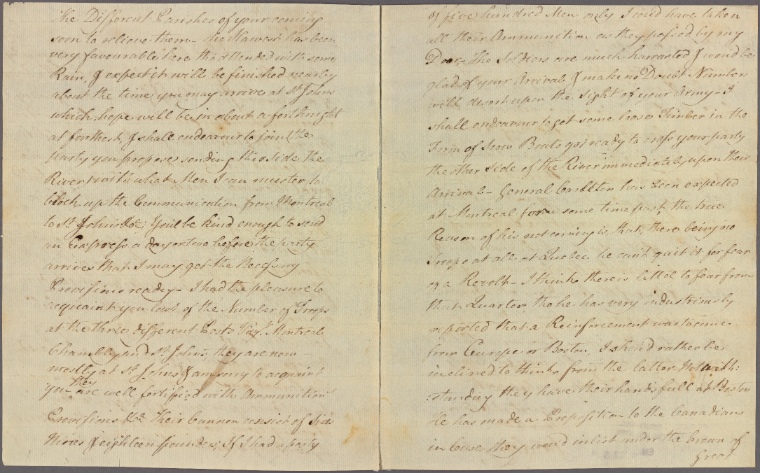 the Different Parishes of your coming
soon to relieve them — the Harvest has been
very favourable here tho attended with some
Rain, I expect it will be finished nearly
about the time you may arrive at St Johns
which hope will be in about a forthnight
at farthest, I shall endeavour to join the
party you propose sending this side the
River with what Men I can muster to
block up the Communication from Montreal
to St Johns &ca You'll be kind enough to send
an Express a day or two before the party
arrives that I may get the Necessary
Provisions ready — I had the pleasure to
acquaint you last of the Number of Troops
at the three different Posts Viz. Montreal
Chambly and St Johns, they are now
mostly at St Johns & am sorry to acquaint
you they are well fortified with Ammunition
Provisions &ca Their Cannon consist of Six
Nines & eighteen pounders, If I had a party
of five hundred Men only I could have taken
all their Ammunition as they passed by my
Door. The Soldiers are much harrassed & would be
glad of your Arrival, I make no Doubt Numbers
will desert upon the Sight of your Army — I
shall endeavour to get some loose Timber in the
Form of Scow Boats got ready to cross your party
the other side of the River immediately upon their
Arrival — General Carleton has been expected
at Montreal for some time past, the true
Reason of his not coming is, that, there being no
Troops at all at Quebec he can't quit it for fear
of a Revolt — I think there is little to fear from
that Quarter tho he has very industriously
reported that a Reinforcement was coming
from Europe or Boston, I should rather be
inclined to think from the latter, Notwith:
standing they have their hands full at Boston
He has made a Proposition to the Canadians
in Case they would inlist under the Crown of
Great